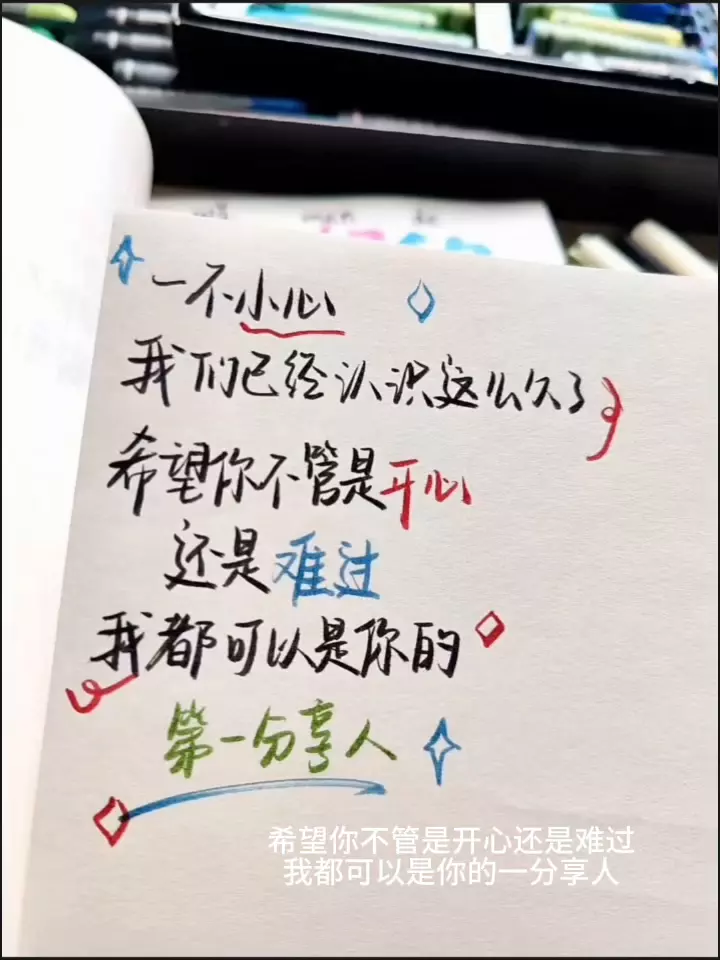 一不小心
我们已经认识这么久了
希望你不管是开心
还是难过
我都可以是你的
第一分享人
希望你不管是开心还是难过
我都可以是你的一分享人